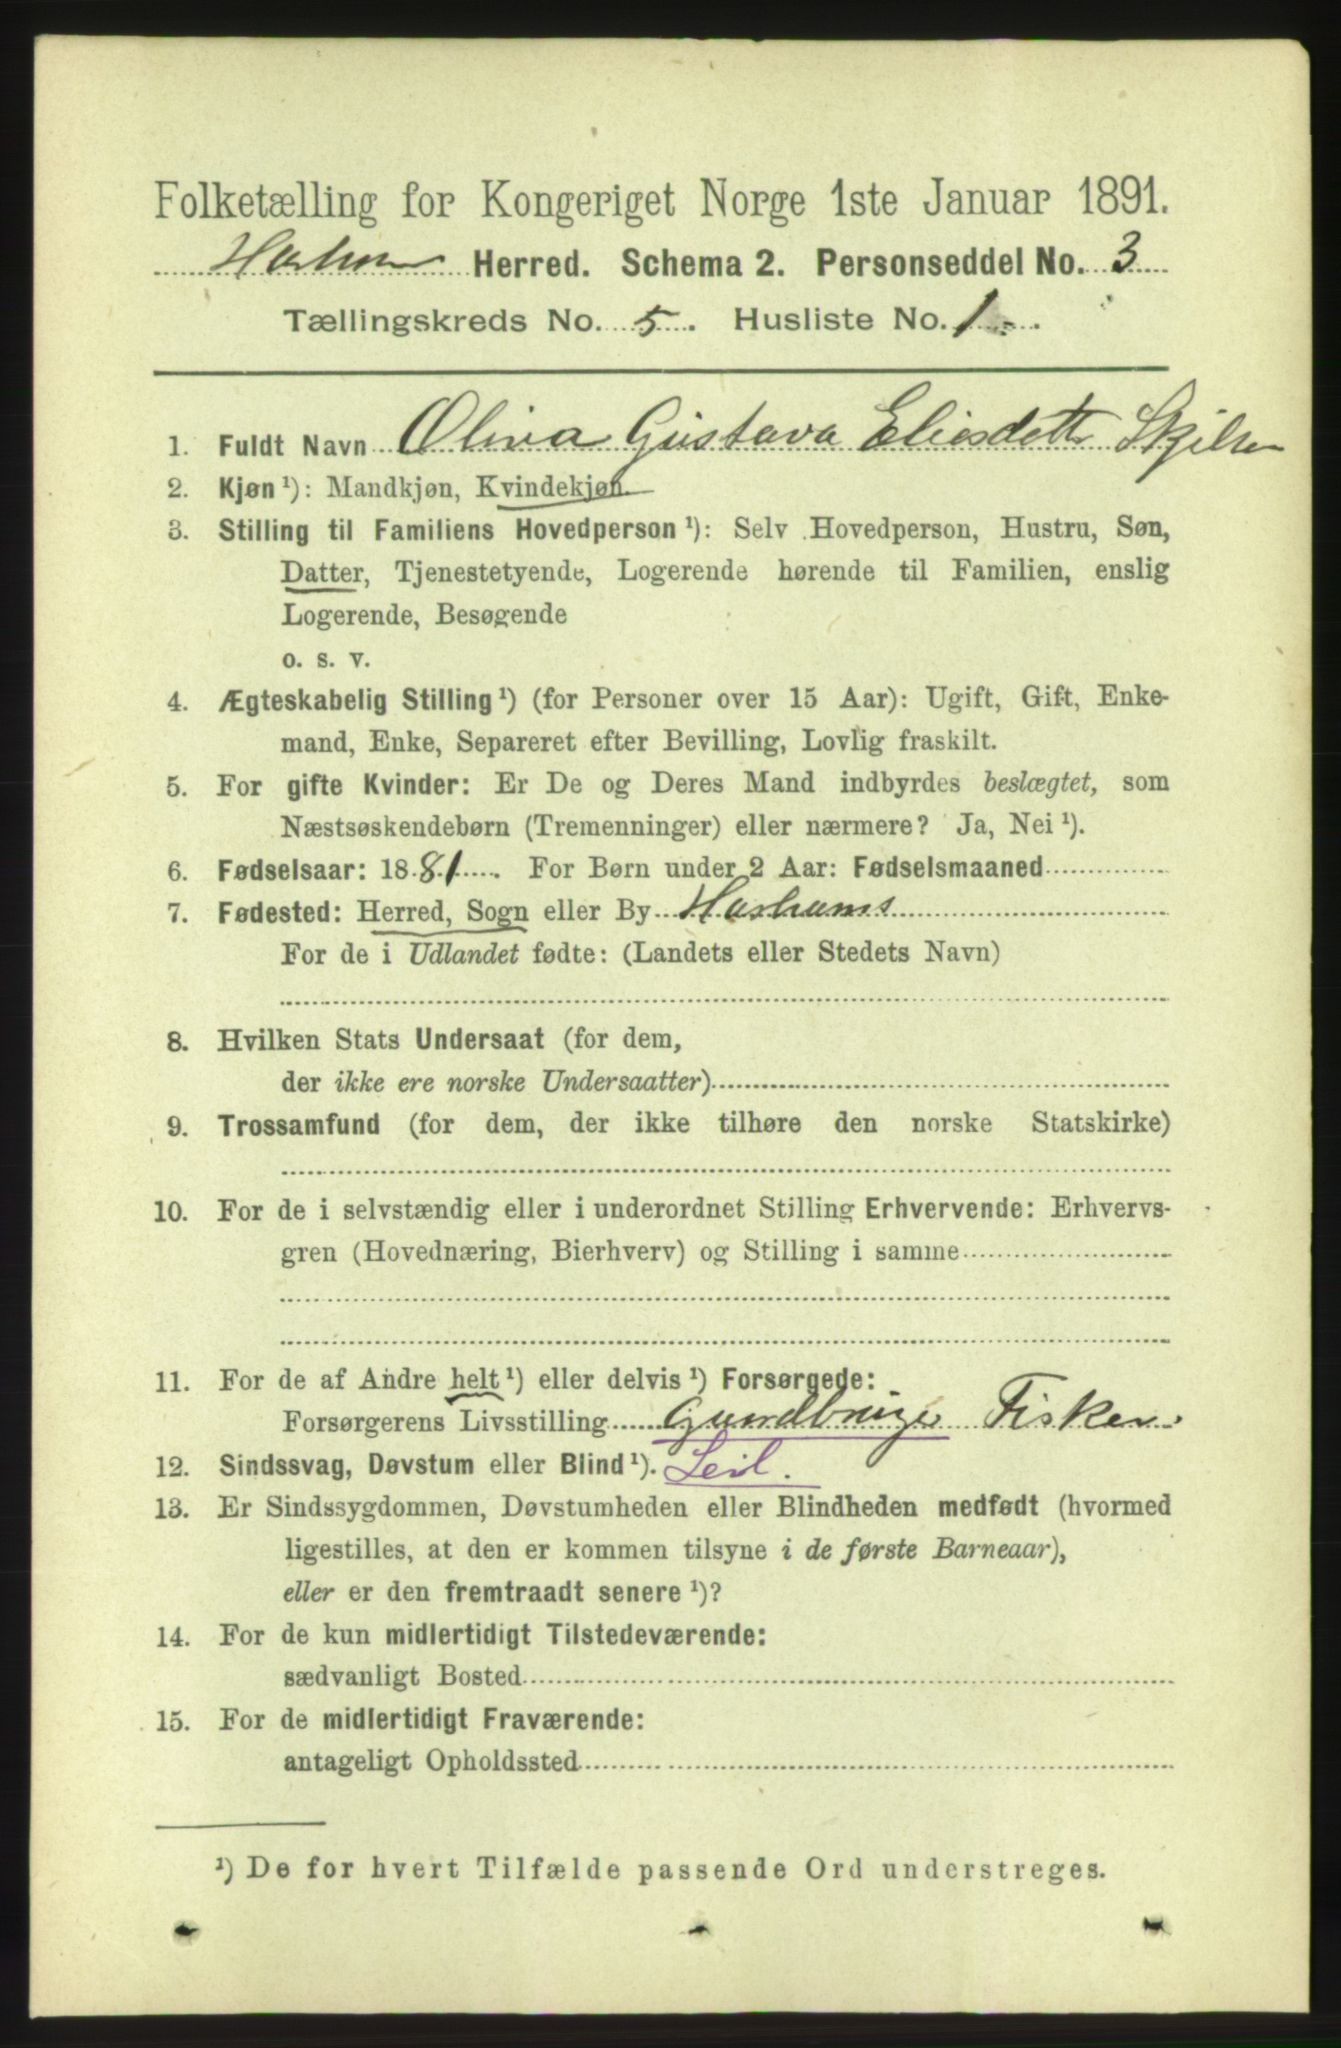 Folketælling for Kongeriget Norge 1ste Januar 1891.
Herred. Schema 2. Personseddel No. 3
Tællingskreds No. 5. Husliste No. 1
1. Fuldt Navn Olina Gustava Eliasdatter
2. Kjøn ¹): Mandkjøn, Kvindekjøn.
3. Stilling til Familiens Hovedperson ¹): Selv Hovedperson, Hustru, Søn,
Datter, Tjenestetyende, Logerende hørende til Familien, enslig
Logerende, Besøgende
o. s. v.
4. Ægteskabelig Stilling ¹) (for Personer over 15 Aar): Ugift, Gift, Enke-
mand, Enke, Separeret efter Bevilling, Lovlig fraskilt.
5. For gifte Kvinder: Er De og Deres Mand indbyrdes beslægtet, som
Næstsøskendebørn (Tremenninger) eller nærmere? Ja, Nei ¹).
6. Fødselsaar: 1881. For Børn under 2 Aar: Fødselsmaaned
7. Fødested: Herred, Sogn eller By Harhams
For de i Udlandet fødte: (Landets eller Stedets Navn)
8. Hvilken Stats Undersaat (for dem,
der ikke ere norske Undersaatter)
9. Trossamfund (for dem, der ikke tilhøre den norske Statskirke)
10. For de i selvstændig eller i underordnet Stilling Erhvervende: Erhvervs-
gren (Hovednæring, Bierhverv) og Stilling i samme
11. For de af Andre helt ¹) eller delvis ¹) Forsørgede:
Forsørgerens Livsstilling Gaardbruger Fisker
12. Sindssvag, Døvstum eller Blind ¹). Leil.
13. Er Sindssygdommen, Døvstumheden eller Blindheden medfødt (hvormed
ligestilles, at den er kommen tilsyne i de første Barneaar),
eller er den fremtraadt senere ¹)?
14. For de kun midlertidigt Tilstedeværende:
sædvanligt Bosted
15. For de midlertidigt Fraværende:
antageligt Opholdssted
¹) De for hvert Tilfælde passende Ord understreges.